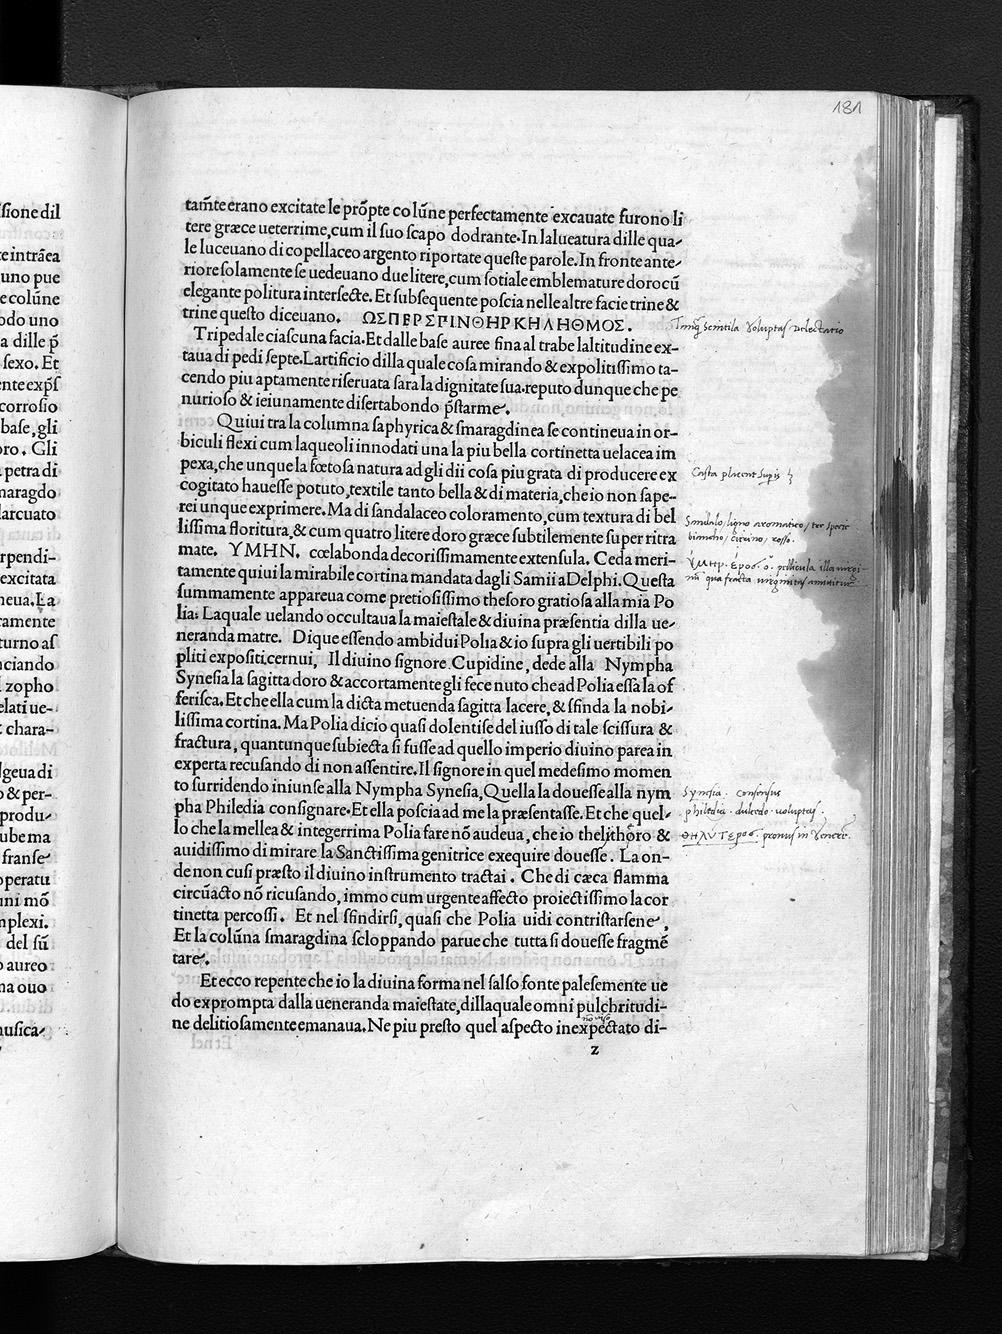 181
tam̃te erano excitate le prõpte colũne perfectamente excauate furono li
tere græce ueterrime,cum il suo scapo dodrante.In lalueatura dille qua-
le luceuano di copellaceo argento riportate queste parole.In fronte ante-
riore solamente se uedeuano due litere,cum sotiale emblemature doro cũ
elegante politura intersecte.Et subsequente poscia nelle altre facie trine &
trine questo diceuano. ΩΣΠΕΡ ΣΠΙΝΘΗΡ ΚΗΛΗΘΜΟΣ.
scintila voluptas delectatio
Tripedale ciascuna facia.Et dalle base auree fina al trabe laltitudine ex-
taua di pedi septe.Lartificio dilla quale cosa mirando & expolitissimo ta-
cendo piu aptamente riseruata sara la dignitate sua.reputo dunque che pe
nurioso & ieiunamente disertabondo p̃starme.
Quiui tra la columna saphyrica & smaragdinea se contineua in or-
biculi flexi cum laqueoli innodati una la piu bella cortinetta uelacea im
pexa,che unque la fœtosa natura ad gli dii cosa piu grata di producere ex
Casta placent supis
cogitato hauesse potuto,textile tanto bella & di materia,che io non sape-
rei unque exprimere.Ma di sandalaceo coloramento,cum textura di bel
Sandalo, ligno aromatico, tre specie
lissima floritura,& cum quatro litere doro græce subtilemente super ritra
biancho, citrino, rosso.
mate. ΥΜΗΝ. cœlabonda decorissimamente extensula. Ceda meri-
pellicula illa
tamente quiui la mirabile cortina mandata dagli Samii a Delphi.Questa
qua fracta virginitas amittitur
summamente appareua come pretiosissimo thesoro gratiosa alla mia Po
lia: Laquale uelando occultaua la maiestale & diuina præsentia dilla ue-
neranda matre. Dique essendo ambidui Polia & io supra gli uertibili po
pliti expositi cernui, Il diuino signore Cupidine, dede alla Nympha
Synesia la sagitta doro & accortamente gli fece nuto che ad Polia essa la of
ferisca.Et che ella cum la dicta metuenda sagitta lacere,& sfinda la nobi-
lissima cortina. Ma Polia dicio quasi dolentise del iusso di tale scissura &
fractura, quantunque subiecta si fusse ad quello imperio diuino parea in
experta recusando di non assentire.Il signore in quel medesimo momen
to surridendo iniunse alla Nympha Synesia,Quella la douesse alla nym
Synesia. consensus
pha Philedia consignare.Et ella poscia ad me la præsentasse.Et che quel-
philedia. dulcedo voluptas.
lo che la mellea & integerrima Polia fare nõ audeua, che io thelithoro &
θηλυτερος. pronus in venere.
auidissimo di mirare la Sanctissima genitrice exequire douesse. La on-
de non cusi præsto il diuino instrumento tractai. Che di cæca flamma
circũacto nõ ricusando, immo cum urgente affecto proiectissimo la cor
tinetta percossi. Et nel sfindirsi, quasi che Polia uidi contristarsene,
Et la colũna smaragdina scloppando parue che tutta si douesse fragmẽ
tare.
Et ecco repente che io la diuina forma nel salso fonte palesemente ue
do exprompta dalla ueneranda maiestate,dilla quale omni pulchritudi-
ne delitiosamente emanaua.Ne piu presto quel aspecto inexpectato di-
z